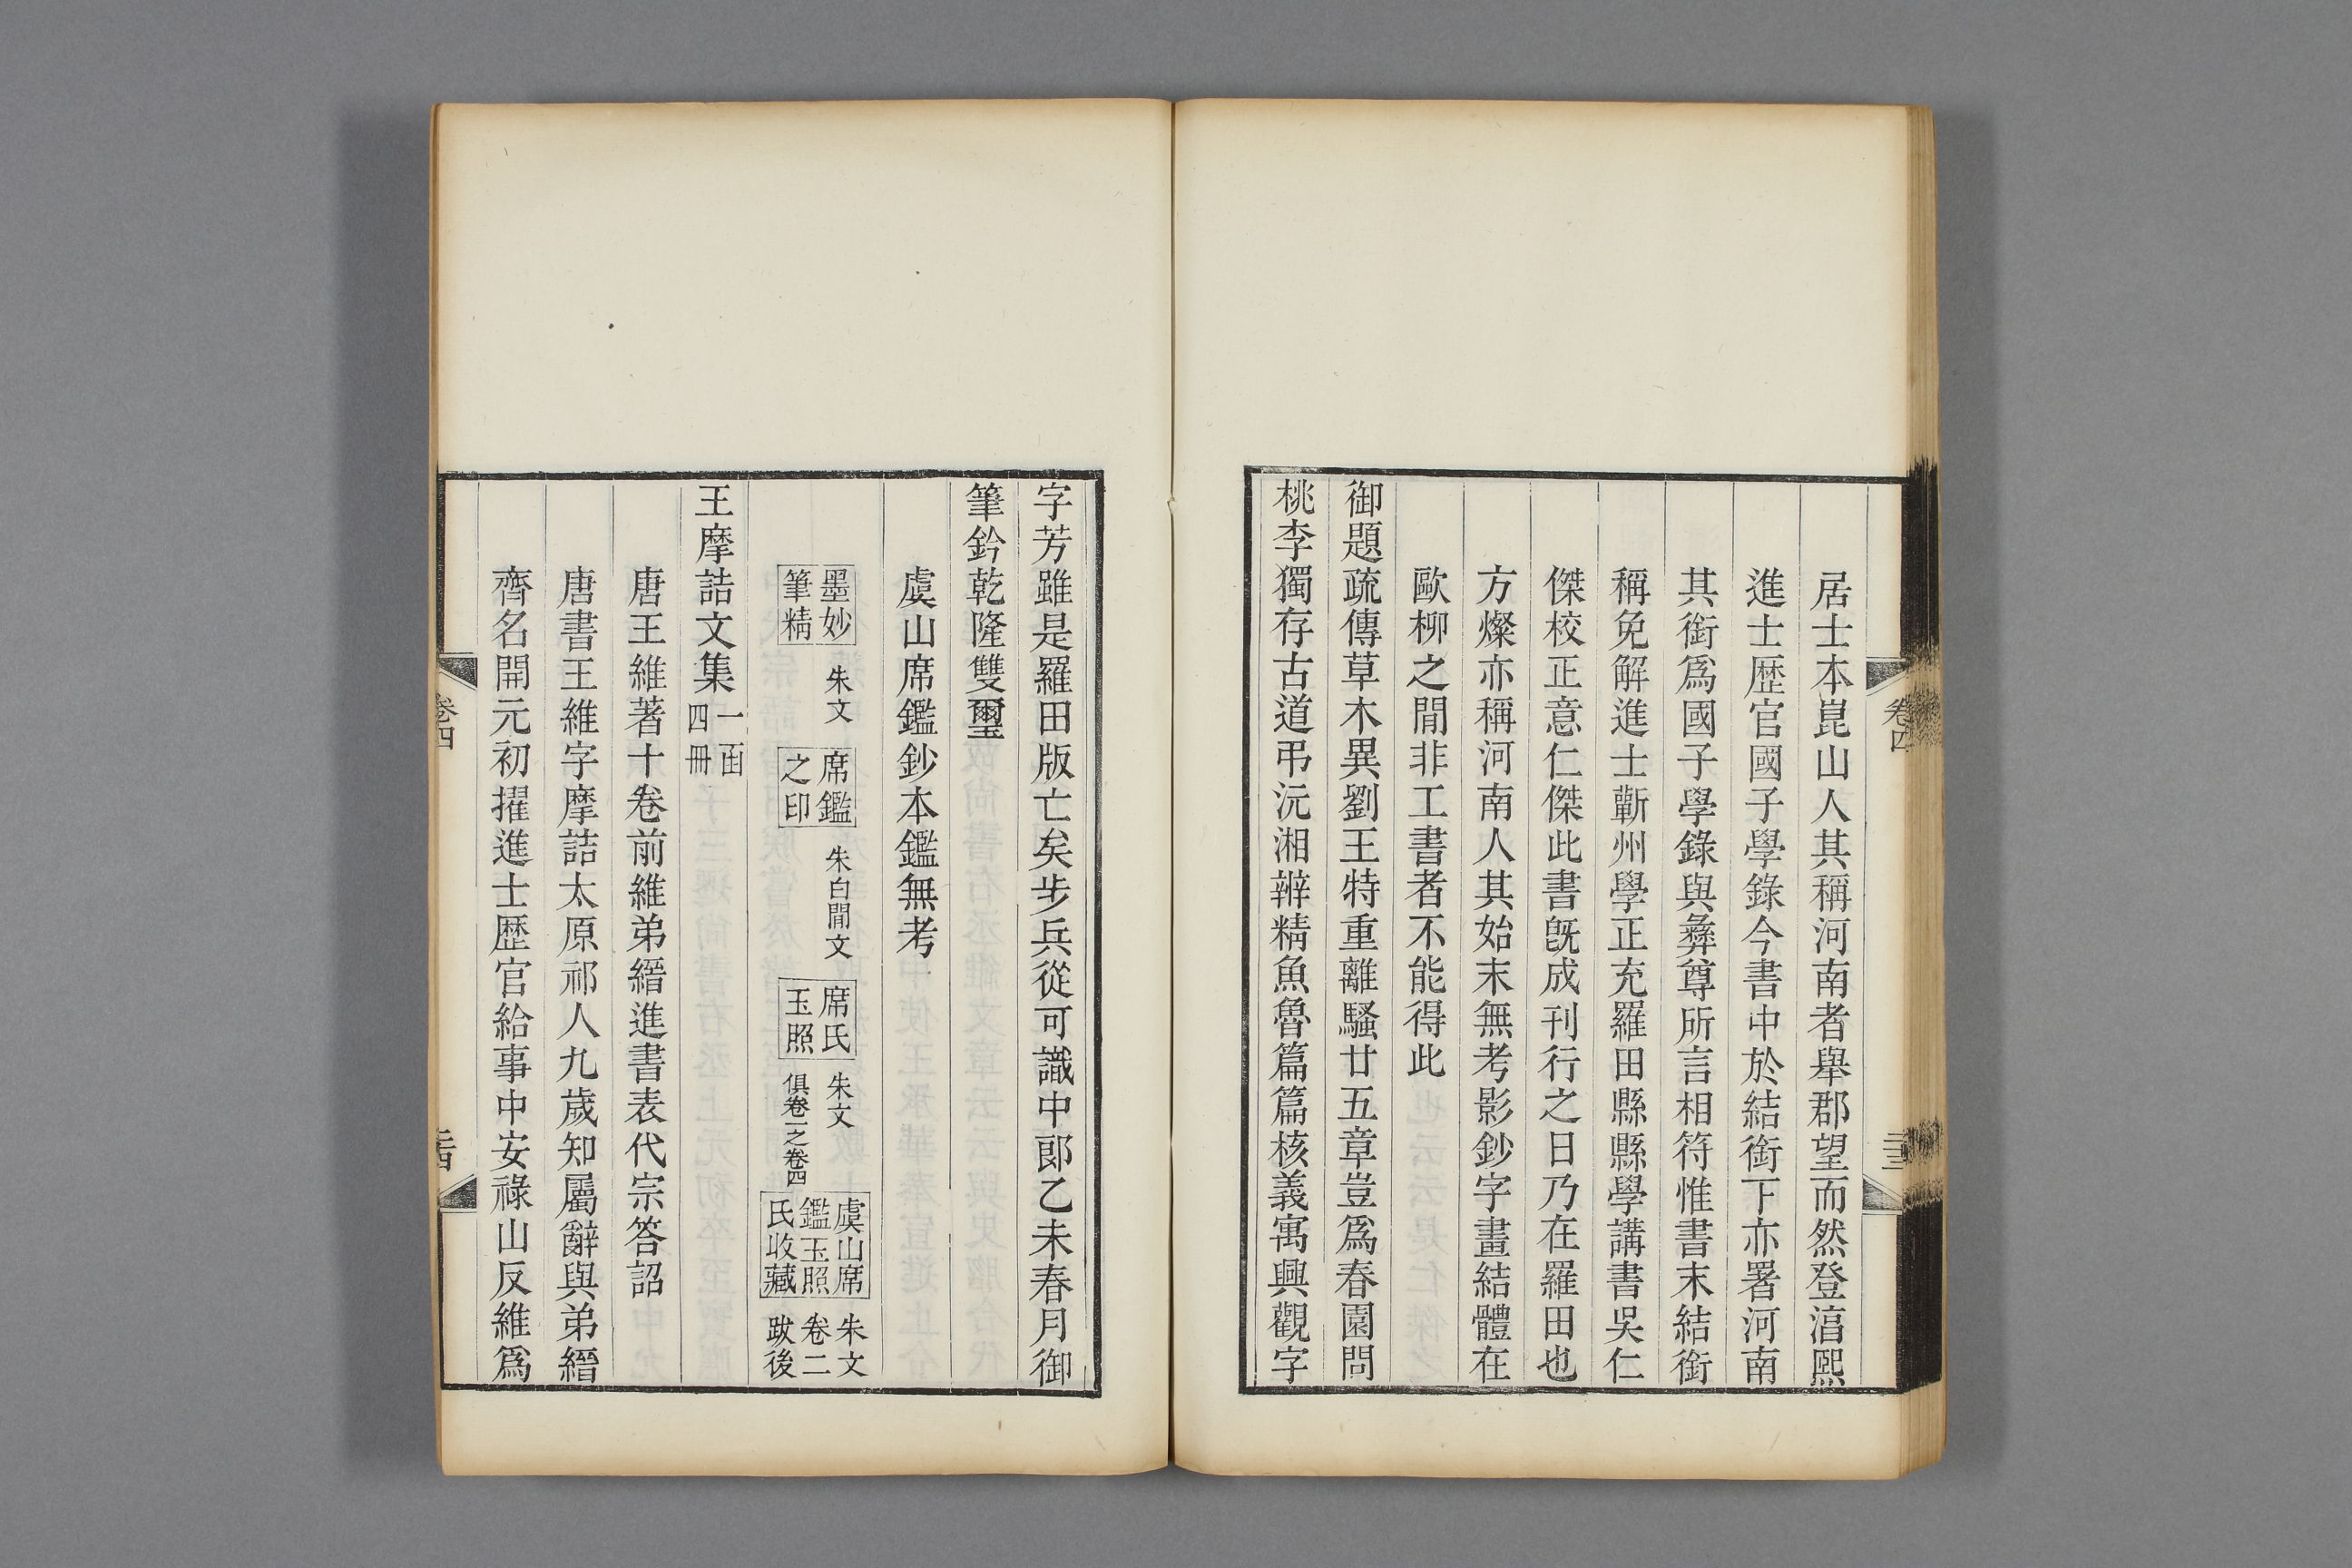 居士本崑山人其稱河南者舉郡望而然登淳熙
進士歷官國子學錄今書中於結銜下亦署河南
其銜爲國子學錄與彝尊所言相符惟書末結銜
稱免解進士蘄州學正充羅田縣縣學講書吳仁
傑校正意仁傑此書旣成刊行之日乃在羅田也
方燦亦稱河南人其始末無考影鈔字畫結體在
歐柳之閒非工書者不能得此
御題疏傳草木異劉王特重離騷廿五章豈爲春園問
桃李獨存古道弔沅湘辨精魚魯篇篇核義寓興觀字
卷四
字芳雖是羅田版亡矣步兵從可識中郎乙未春月御
筆鈐乾隆雙璽
虞山席鑑鈔本鑑無考
墨妙筆精 朱文 席鑑之印 朱白閒文 席氏玉照 朱文 俱卷一之卷四 虞山席鑑玉照氏收藏 朱文卷二跋後
王摩詰文集 一函四冊
唐王維著十卷前維弟縉進書表代宗答詔
唐書王維字摩詰太原祁人九歲知屬辭與弟縉
齊名開元初擢進士歷官給事中安祿山反維爲
卷四